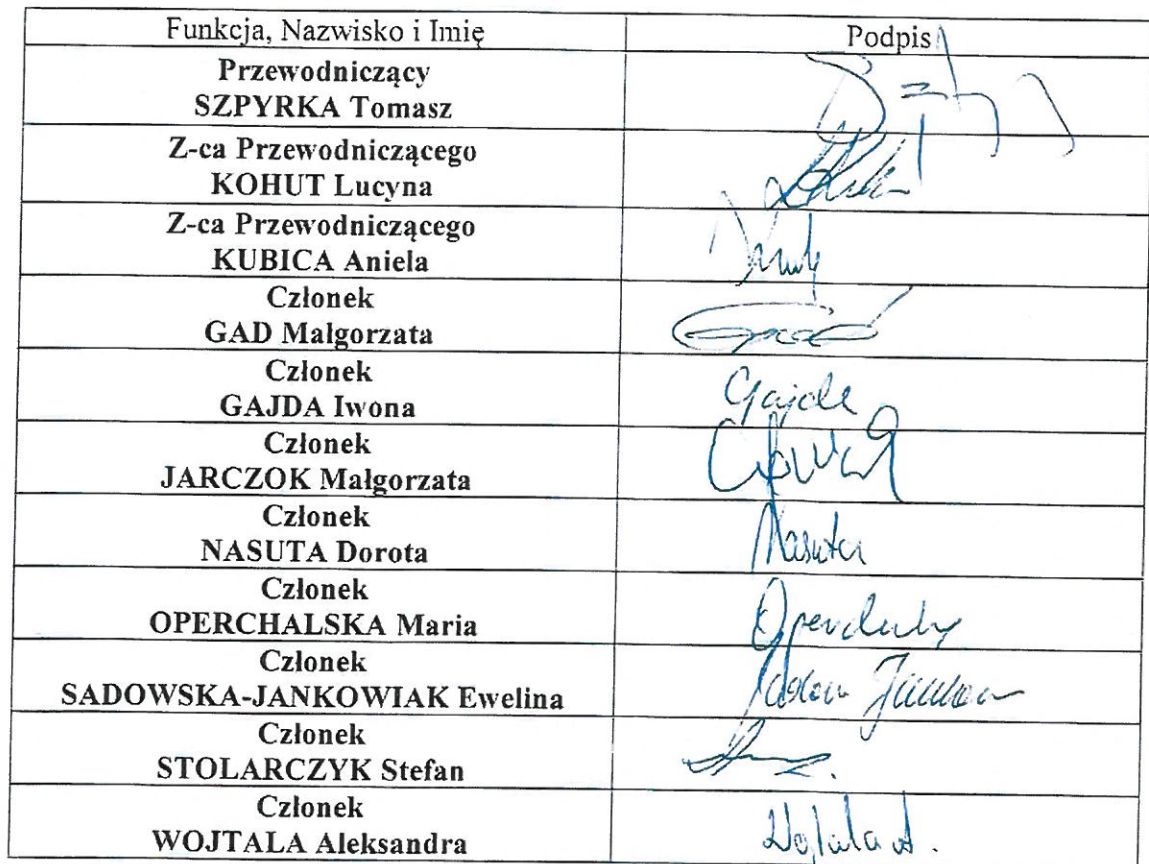 Funkcja, Nazwisko i Imię Podpis
Przewodniczący
SZPYRKA Tomasz
Z-ca Przewodniczącego
KOHUT Lucyna
Z-ca Przewodniczącego
KUBICA Aniela
Członek
GAD Małgorzata
Członek
GAJDA Iwona Gajda
Członek
JARCZOK Małgorzata
Członek
NASUTA Dorota Nasuta
Członek
OPERCHALSKA Maria
Członek
SADOWSKA-JANKOWIAK Ewelina
Członek
STOLARCZYK Stefan
Członek
WOJTALA Aleksandra Wojtala A.